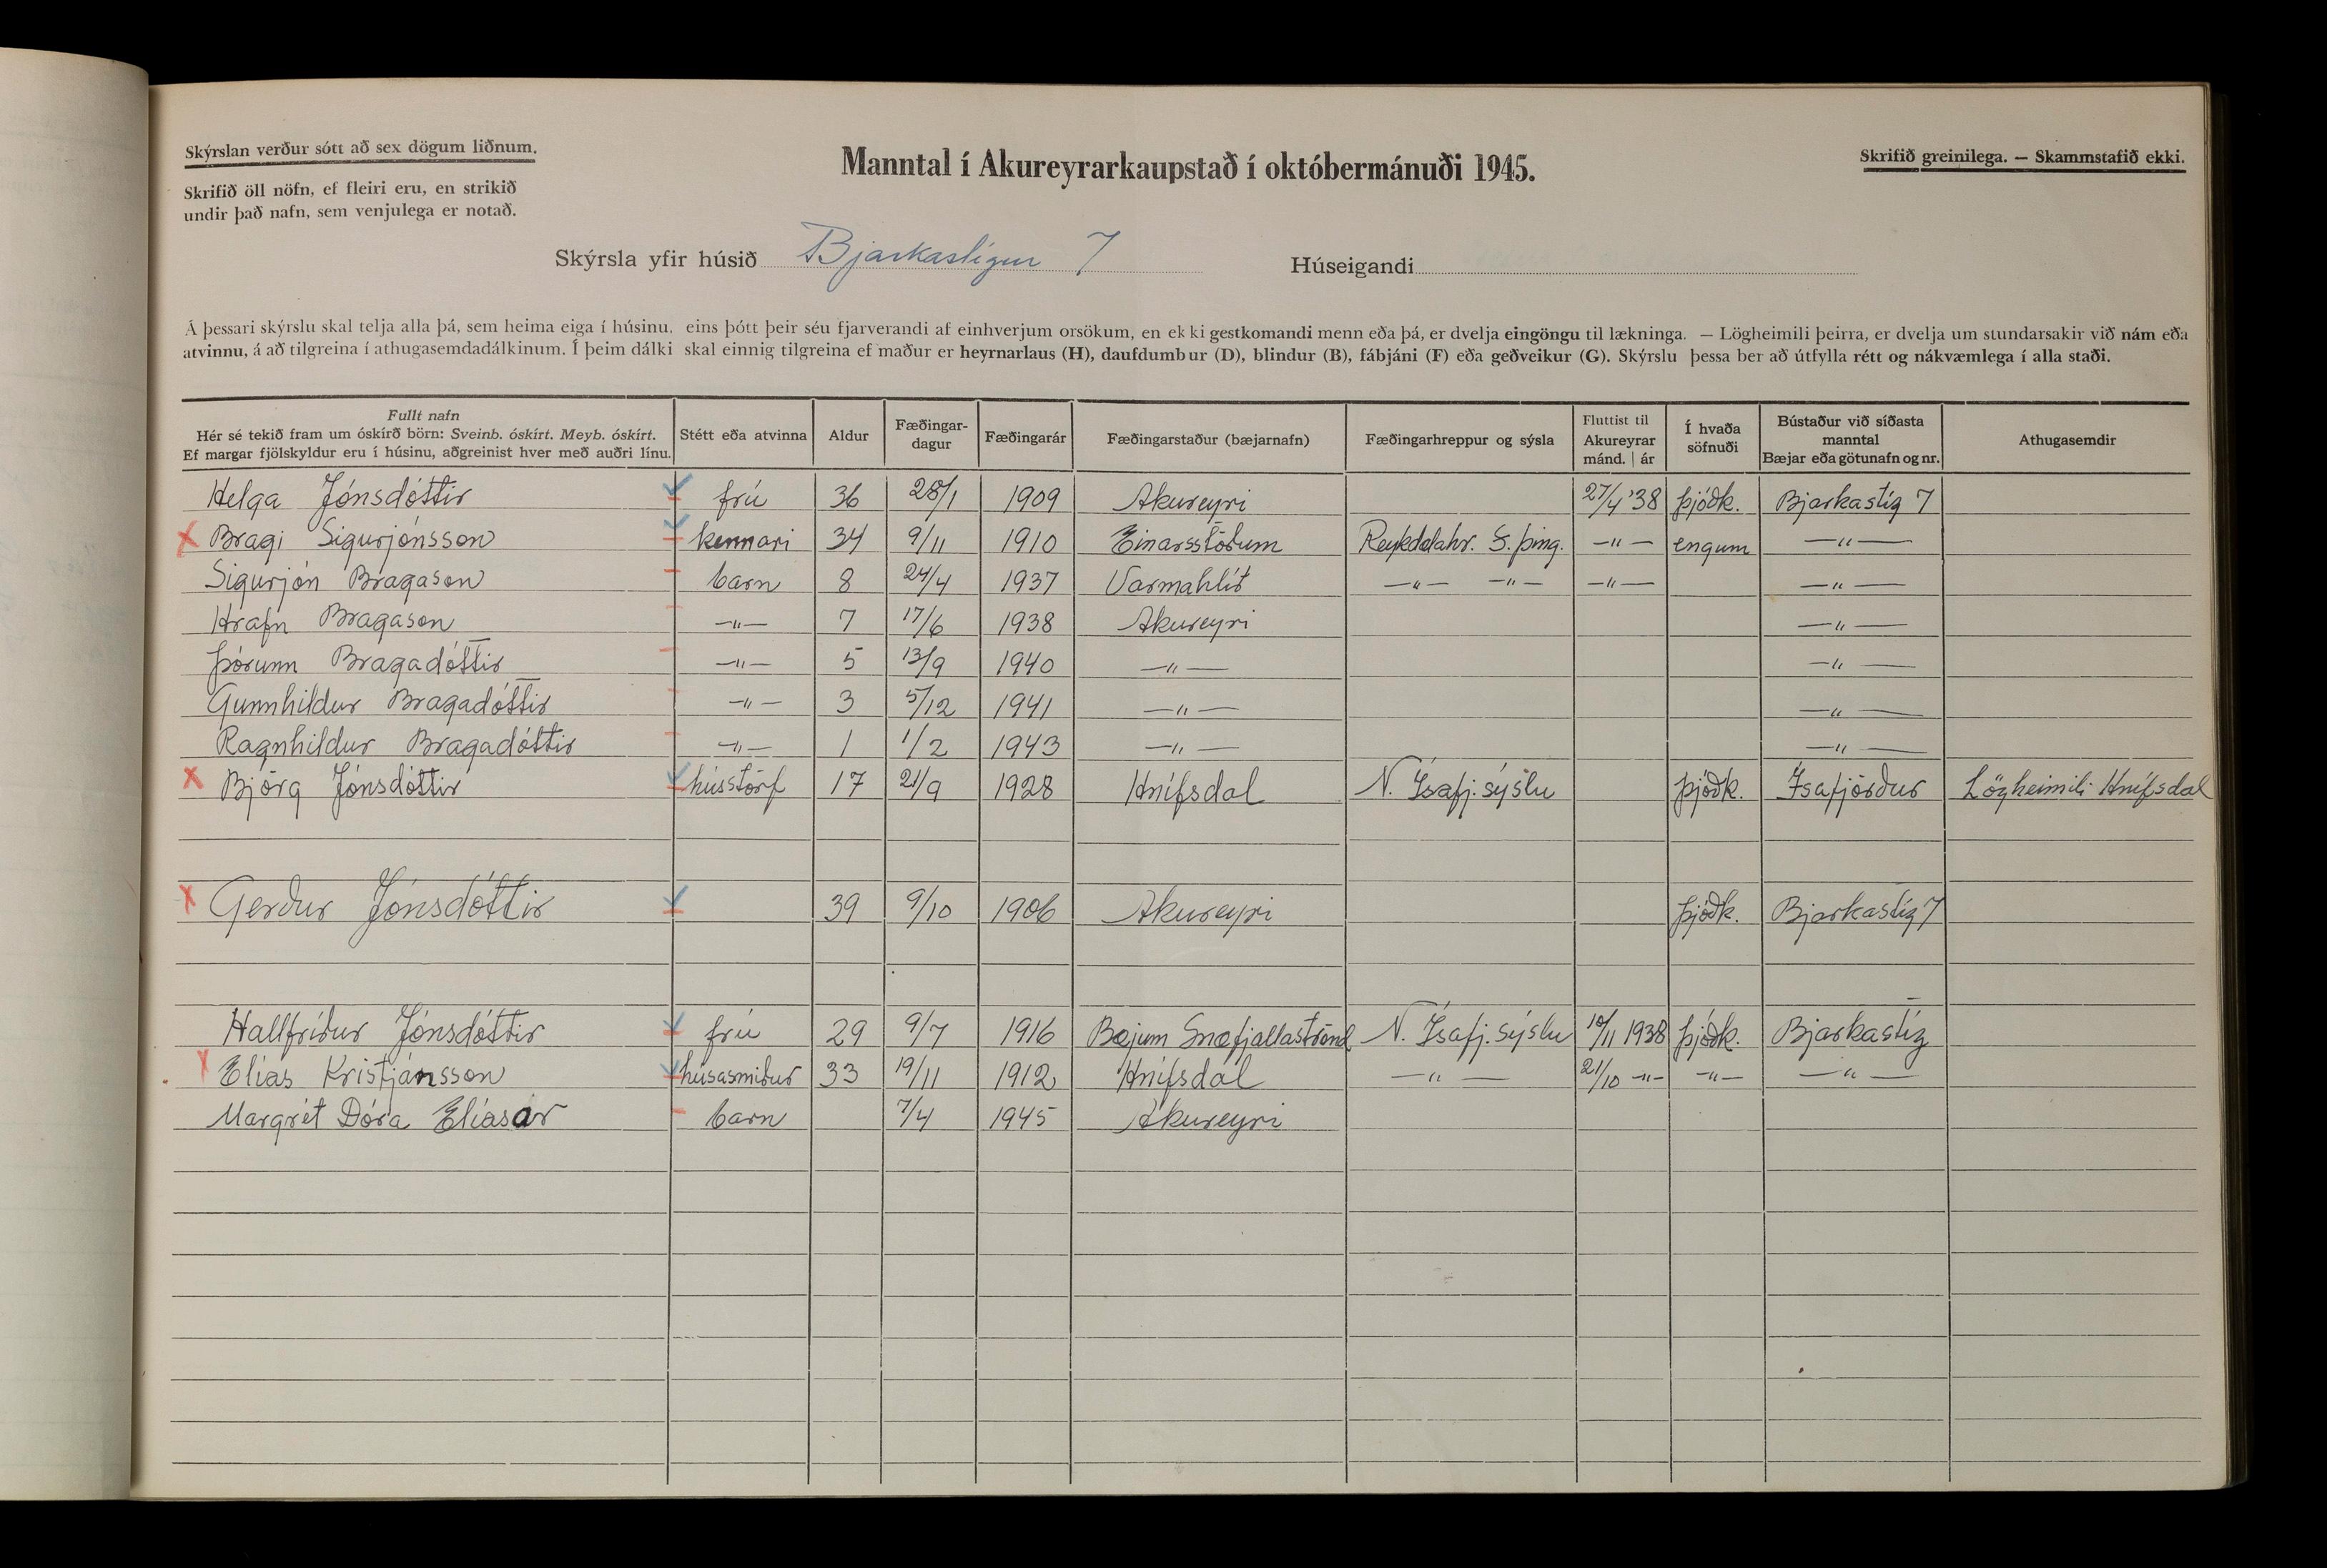 Skýrslan verður sótt að sex dögum liðnum.
Skrifið öll nöfn, ef fleiri eru, en strikið
undir það nafn, sem venjulega er notað.
Manntal í Akureyrarkaupstað í októbermánuði 1945.
Skrifið greinilega. — Skammstafið ekki.
Skýrsla yfir húsið Bjarkastígur 7 Húseigandi
Á þessari skýrslu skal telja alla þá, sem heima eiga í húsinu, eins þótt þeir séu fjarverandi af einhverjum orsökum, en ekki gestkomandi menn eða þá, er dvelja eingöngu til lækninga. — Lögheimili þeirra, er dvelja um stundarsakir við nám eða
atvinnu, á að tilgreina í athugasemdadálkinum. Í þeim dálki skal einnig tilgreina ef maður er heyrnarlaus (H), daufdumbur (D), blindur (B), fábjáni (F) eða geðveikur (G). Skýrslu þessa ber að útfylla rétt og nákvæmlega í alla staði.
Fullt nafn
Hér sé tekið fram um óskírð börn: Sveinb. óskírt. Meyb. óskírt.
Ef margar fjölskyldur eru í húsinu, aðgreinist hver með auðri línu.
Stétt eða atvinna
Aldur
Fæðingar-
dagur
Fæðingarár
Fæðingarstaður (bæjarnafn)
Fæðingarhreppur og sýsla
Fluttist til
Akureyrar
mánd. | ár
Í hvaða
söfnuði
Bústaður við síðasta
manntal
Bæjar eða götunafn og nr.
Athugasemdir
Helga Jónsdóttir frú 36 28/1 1909 Akureyri 27/4 '38 þjóðk. Bjarkastíg 7
X Bragi Sigurjónsson kennari 34 9/11 1910 Einarsstöðum Reykdælahr. S. þing. —"— engum —"—
Sigurjón Bragason barn 8 24/4 1937 Varmahlíð —"— —"— —"— —"—
Hrafn Bragason —"— 7 17/6 1938 Akureyri —"—
Þórunn Bragadóttir —"— 5 13/9 1940 —"— —"—
Gunnhildur Bragadóttir —"— 3 5/12 1941 —"— —"—
Ragnhildur Bragadóttir —"— 1 1/2 1943 —"— —"—
X Björg Jónsdóttir hússtörf 17 21/9 1928 Hnífsdal N. Ísafj. sýslu þjóðk. Ísafjörður Lögheimili Hnífsdal
X Gerður Jónsdóttir 39 9/10 1906 Akureyri þjóðk. Bjarkastíg 7
Hallfríður Jónsdóttir frú 29 9/7 1916 Bæjum Snæfjallaströnd N. Ísafj. sýslu 10/11 1938 þjóðk. Bjarkastíg
X Elías Kristjánsson húsasmiður 33 19/11 1912 Hnífsdal —"— 21/10 —"— —"— —"—
Margrét Dóra Elíasar barn 7/4 1945 Akureyri